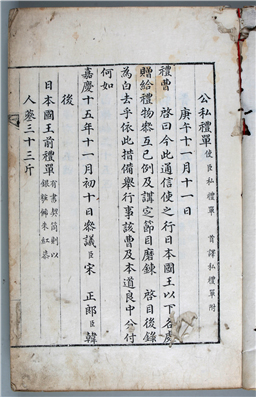 公私禮單 使臣私禮單 首譯私禮單附
庚午十一月十一日
禮曹 啓曰今此通信使之行日本國王以下各處
贈給禮物參互已例及講定節目磨鍊 啓目後錄
為白去乎依此措備舉行事該曹及本道良中分付
何如
嘉慶十五年十一月初十日參議臣宋 正郎臣韓
後
日本國王前禮單
人參三十三斤